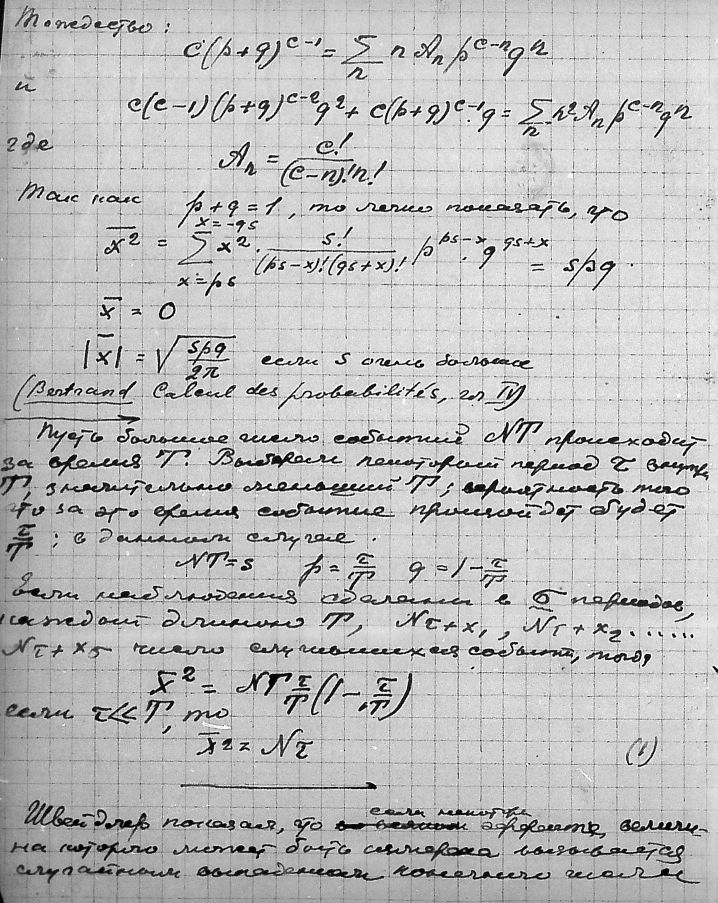 Тождество:
c(p+q)^{c-1} = Σ_n n A_n p^{c-n} q^n
и
c(c-1)(p+q)^{c-2} q^2 + c(p+q)^{c-1} q = Σ_n n^2 A_n p^{c-n} q^n
где
A_n = c! / (c-n)! n!
Так как p+q=1, то легко показать, что
x̄^2 = Σ_{x=ps}^{x=-qs} x^2 · s! / (ps-x)!(qs+x)! p^{ps-x} · q^{qs+x} = spq
x̄ = 0
|x̄| = √(spq / 2π) если s очень большое
(Bertrand Calcul des probabilités, гл IV)
Пусть большое число событий NT происходит
за время T. Выберем некоторый период τ внутри
T, значительно меньший T; вероятность того
что за это время событие произойдет будет
τ/T; в данном случае.
NT=s p = τ/T q = 1 - τ/T
Если наблюдения сделаны в σ периодов,
каждый длиною T, Nτ+x_1, Nτ+x_2 ......
Nτ+x_σ число случившихся событий, тогда
x̄^2 = NT τ/T (1 - τ/T)
если τ≪T, то
x̄^2 = Nτ (1)
Швейдлер показал, что если некоторый эффект, величи-
на которого может быть измерена вызывается
случайным выпадением конечного числа